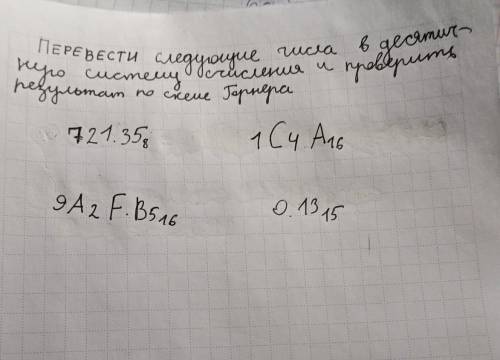 ПЕРЕВЕСТИ следующие числа в десятич-
ную систему счисления и проверить
результат по схеме Горнера
721.35₈ 1C4.A₁₆
9A2F.B5₁₆ 0.13₁₅